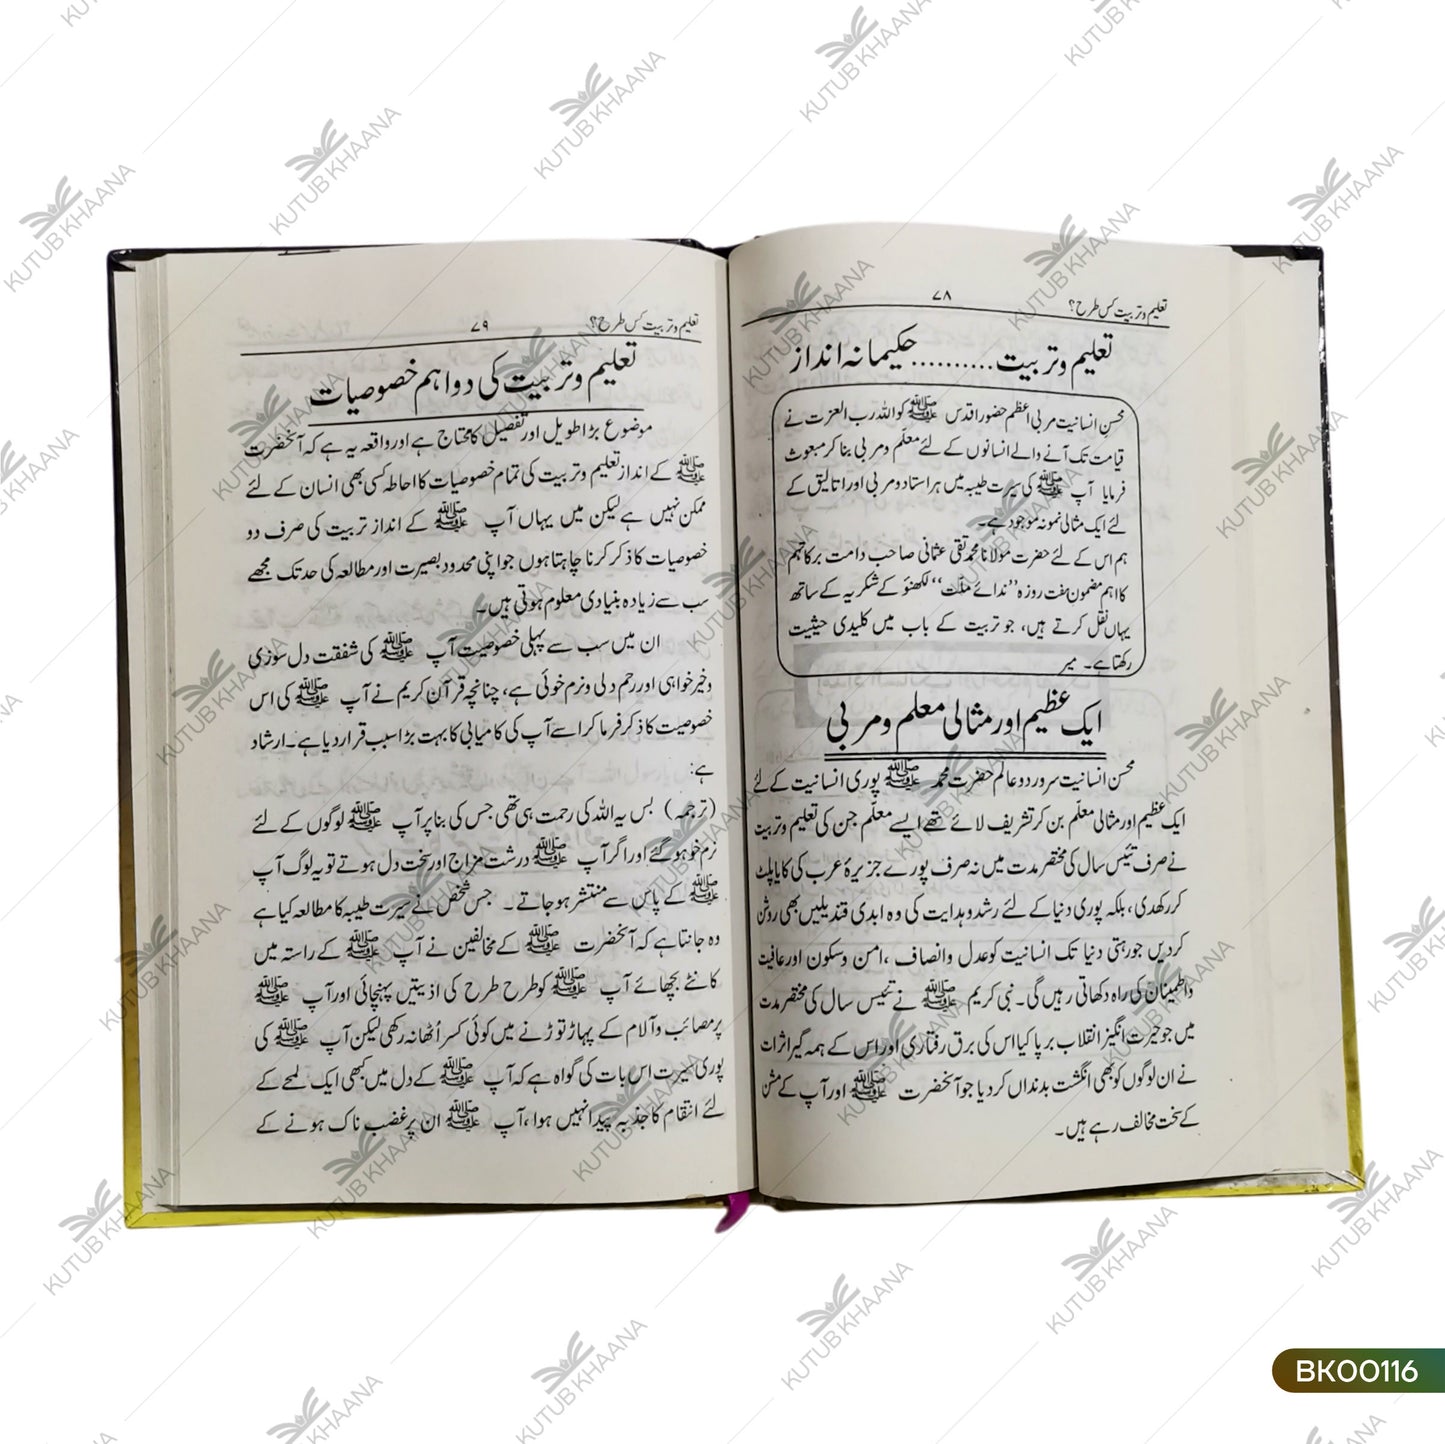 تعلیم و تربیت کس طرح؟
۷۸
تعلیم و تربیت..........حکیمانہ انداز
محسن انسانیت مربی اعظم حضور اقدس ﷺ کو اللہ رب العزت نے
قیامت تک آنے والے انسانوں کے لئے معلّم و مربی بنا کر مبعوث
فرمایا آپ ﷺ کی سیرت طیبہ میں ہر استاد و مربی اور اتالیق کے
لئے ایک مثالی نمونہ موجود ہے۔
ہم اس کے لئے حضرت مولانا محمد تقی عثمانی صاحب دامت برکاتہم
کا اہم مضمون ہفت روزہ ’’ندائے ملّت‘‘ لکھنؤ کے شکریہ کے ساتھ
یہاں نقل کرتے ہیں، جو تربیت کے باب میں کلیدی حیثیت
رکھتا ہے۔ میر
ایک عظیم اور مثالی معلم و مربی
محسن انسانیت سرور دو عالم حضرت محمد ﷺ پوری انسانیت کے لئے
ایک عظیم اور مثالی معلّم بن کر تشریف لائے تھے ایسے معلّم جن کی تعلیم و تربیت
نے صرف تیئس سال کی مختصر مدت میں نہ صرف پورے جزیرۂ عرب کی کایا پلٹ
کر رکھدی، بلکہ پوری دنیا کے لئے رشد و ہدایت کی وہ ابدی قندیلیں بھی روشن
کر دیں جو رہتی دنیا تک انسانیت کو عدل و انصاف ،امن وسکون اور عافیت
واطمینان کی راہ دکھاتی رہیں گی۔ نبی کریم ﷺ نے تیئس سال کی مختصر مدت
میں جو حیرت انگیز انقلاب برپا کیا اس کی برق رفتاری اور اس کے ہمہ گیر اثرات
نے ان لوگوں کو بھی انگشت بدنداں کر دیا جو آنحضرت ﷺ اور آپ کے مشن
کے سخت مخالف رہے ہیں۔
تعلیم و تربیت کس طرح؟
۷۹
تعلیم و تربیت کی دو اہم خصوصیات
موضوع بڑا طویل اور تفصیل کا محتاج ہے اور واقعہ یہ ہے کہ آنحضرت
ﷺ کے انداز تعلیم و تربیت کی تمام خصوصیات کا احاطہ کسی بھی انسان کے لئے
ممکن نہیں ہے لیکن میں یہاں آپ ﷺ کے انداز تربیت کی صرف دو
خصوصیات کا ذکر کرنا چاہتا ہوں جو اپنی محدود بصیرت اور مطالعہ کی حد تک مجھے
سب سے زیادہ بنیادی معلوم ہوتی ہیں۔
ان میں سب سے پہلی خصوصیت آپ ﷺ کی شفقت دل سوزی
و خیر خواہی اور رحم دلی و نرم خوئی ہے، چنانچہ قرآن کریم نے آپ ﷺ کی اس
خصوصیت کا ذکر فرما کر اسے آپ کی کامیابی کا بہت بڑا سبب قرار دیا ہے۔ ارشاد
ہے:
(ترجمہ) بس یہ اللہ کی رحمت ہی تھی جس کی بنا پر آپ ﷺ لوگوں کے لئے
نرم خو ہو گئے اور اگر آپ ﷺ درشت مزاج اور سخت دل ہوتے تو یہ لوگ آپ
ﷺ کے پاس سے منتشر ہو جاتے۔ جس شخص نے سیرت طیبہ کا مطالعہ کیا ہے
وہ جانتا ہے کہ آنحضرت ﷺ کے مخالفین نے آپ ﷺ کے راستہ میں
کانٹے بچھائے آپ ﷺ کو طرح طرح کی اذیتیں پہنچائی اور آپ ﷺ
پر مصائب و آلام کے پہاڑ توڑنے میں کوئی کسر اُٹھا نہ رکھی لیکن آپ ﷺ کی
پوری سیرت اس بات کی گواہ ہے کہ آپ ﷺ کے دل میں بھی ایک لمحے کے
لئے انتقام کا جذبہ پیدا نہیں ہوا، آپ ﷺ ان پر غضب ناک ہونے کے
KUTUB KHAANA
BK00116